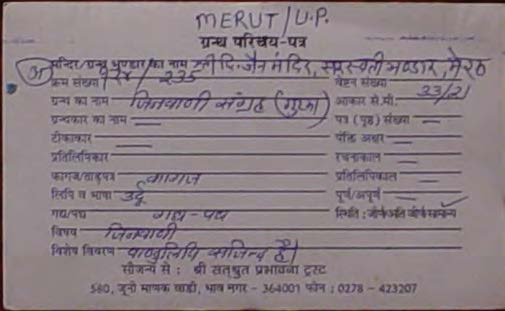 MERUT/U.P.
ग्रन्थ परिचय-पत्र
मन्दिर/ग्रन्थ भण्डार का नाम श्री दि. जैन मंदिर, सरस्वती भण्डार, मेरठ
क्रम संख्या 235 वेष्टन संख्या 33/21
ग्रन्थ का नाम जिनवाणी संग्रह (गुटका) आकार से.मी.
ग्रन्थकार का नाम — पत्र (पृष्ठ) संख्या —
टीकाकार — पंक्ति अक्षर —
प्रतिलिपिकार रचनाकाल —
कागज/ताड़पत्र कागज प्रतिलिपिकाल —
लिपि व भाषा उर्दू पूर्ण/अपूर्ण —
गद्य/पद्य गद्य-पद्य स्थिति : जीर्ण/अति जीर्ण/सामान्य
विषय जिनवाणी
विशेष विवरण पाण्डुलिपि सजिल्द है।
सौजन्य से : श्री सतश्रुत प्रभावना ट्रस्ट
580, जूनी माणक वाडी, भाव नगर - 364001 फोन : 0278 - 423207